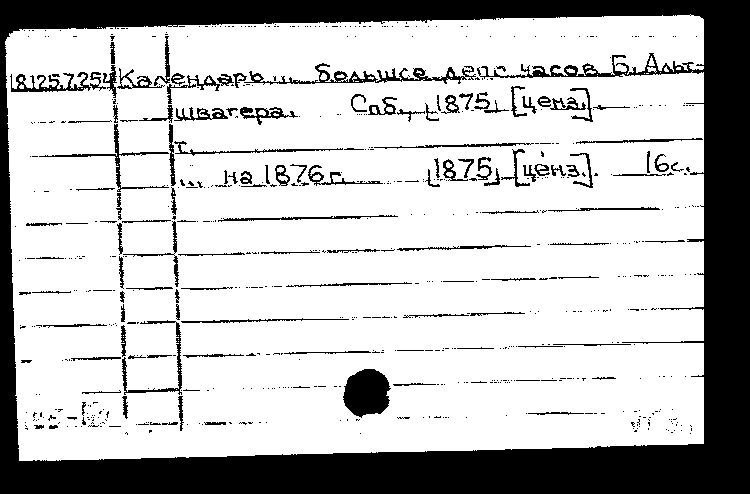 18.125.7.254 Календарь ... большое депо часов Б. Альт-
швагера. Спб., [1875] [ценз.].
т.
... на 1876 г. [1875] [ценз.]. 16 с.